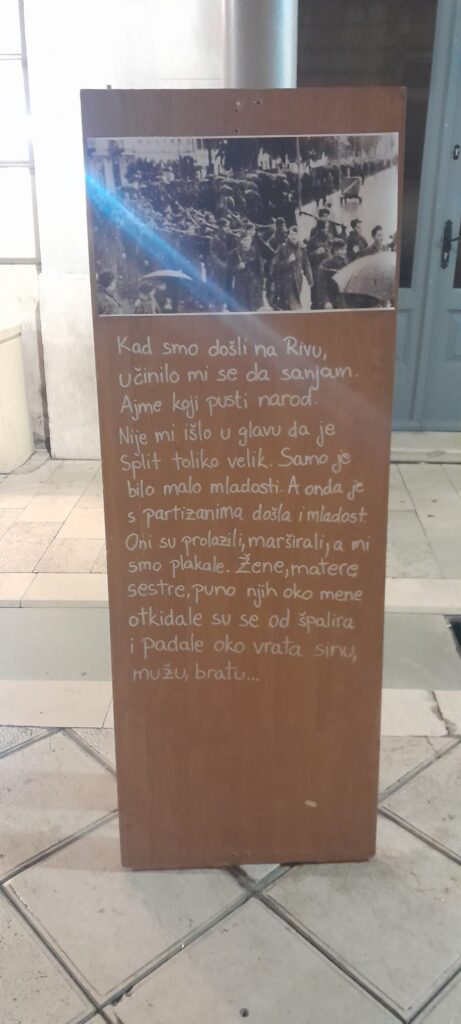 Kad smo došli na Rivu,
učinilo mi se da sanjam.
Ajme koji pusti narod.
Nije mi išlo u glavu da je
Split toliko velik. Samo je
bilo malo mladosti. A onda je
s partizanima došla i mladost.
Oni su prolazili, marširali, a mi
smo plakale. Žene, matere
sestre, puno njih oko mene
otkidale su se od špalira
i padale oko vrata sinu,
mužu, bratu...